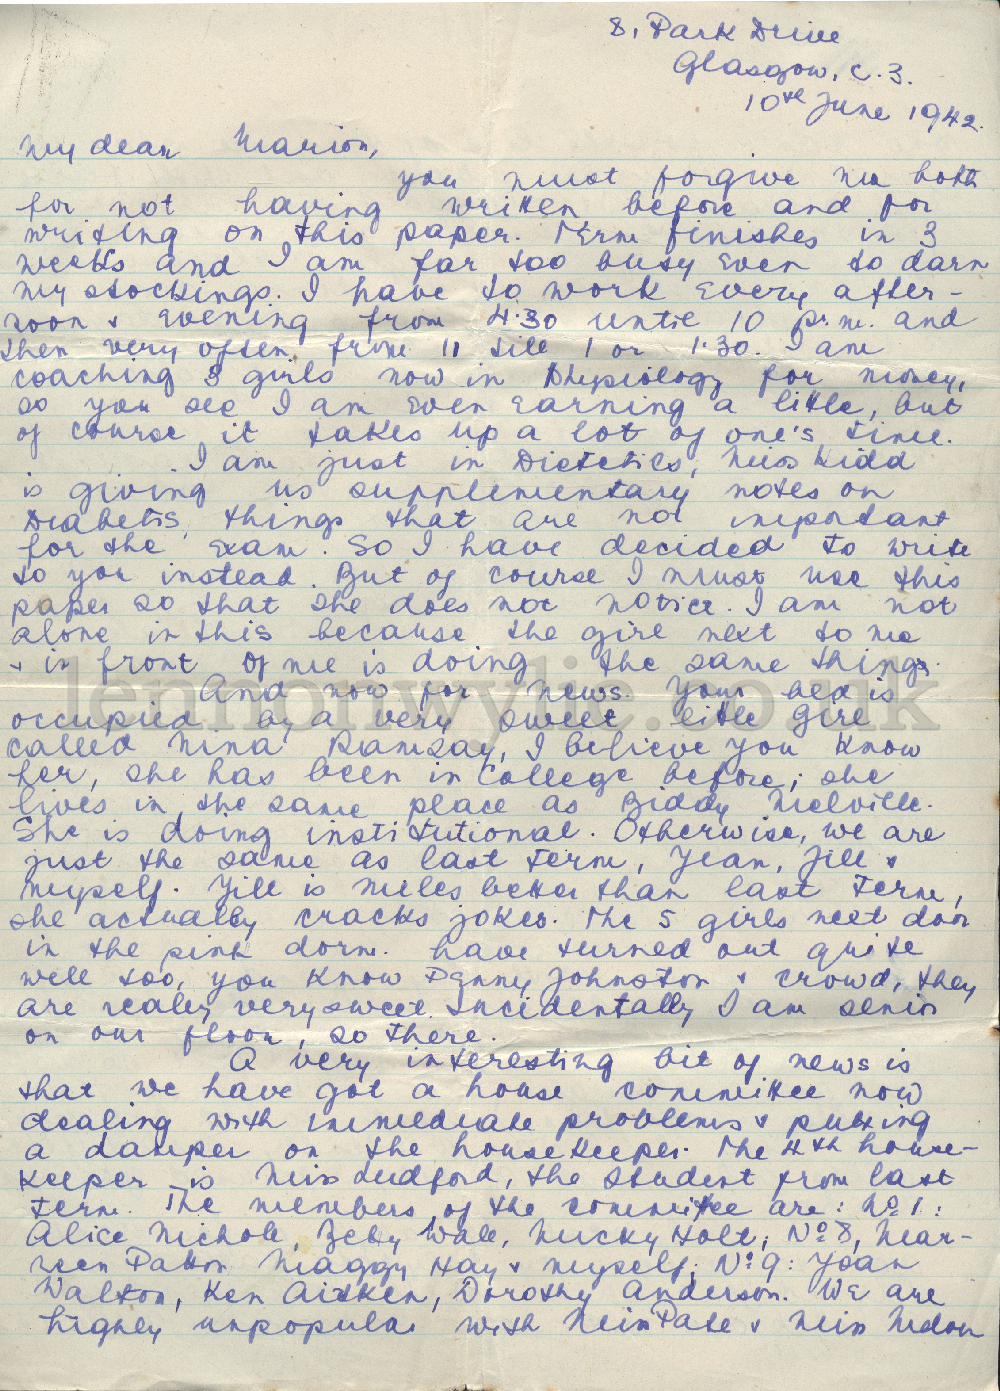 8, Park Drive
Glasgow, C.3.
10th June 1942.
My dear Marion,
you must forgive me both
for not having written before and for
writing on this paper. Term finishes in 3
weeks and I am far too busy even to darn
my stockings. I have to work every after-
noon & evening from 4.30 until 10 p.m. and
then very often from 11 till 1 or 1.30. I am
coaching 3 girls now in Physiology for money,
so you see I am even earning a little, but
of course it takes up a lot of one's time.
I am just in Dietetics, Miss Kidd
is giving us supplementary notes on
Diabetis, things that are not important
for the exam. So I have decided to write
to you instead. But of course I must use this
paper so that she does not notice. I am not
alone in this because the girl next to me
& in front of me is doing the same thing.
And now for news. Your bed is
occupied by a very sweet little girl
called Nina Ramsay, I believe you know
her, she has been in College before; she
lives in the same place as Biddy Melville.
She is doing institutional. Otherwise, we are
just the same as last term, Jean, Jill &
myself. Jill is miles better than last term,
she actually cracks jokes. The 5 girls next door
in the pink dorm. have turned out quite
well too, you know Penny Johnston & crowd, they
are really very sweet. Incidentally I am senior
on our floor, so there.
A very interesting bit of news is
that we have got a house committee now
dealing with immediate problems & putting
a damper on the housekeeper. The 4th house-
keeper is Miss Ludford, the student from last
term. The members of the committee are: No 1:
Alice Nichols, Betty Wall, Mucky Holt; No 8, Maur-
een Patton Maggy Hay & myself; No 9: Joan
Walton, Ken Aitken, Dorothy Anderson. We are
highly unpopular with Miss Pate & Miss
lennonwylie.co.uk